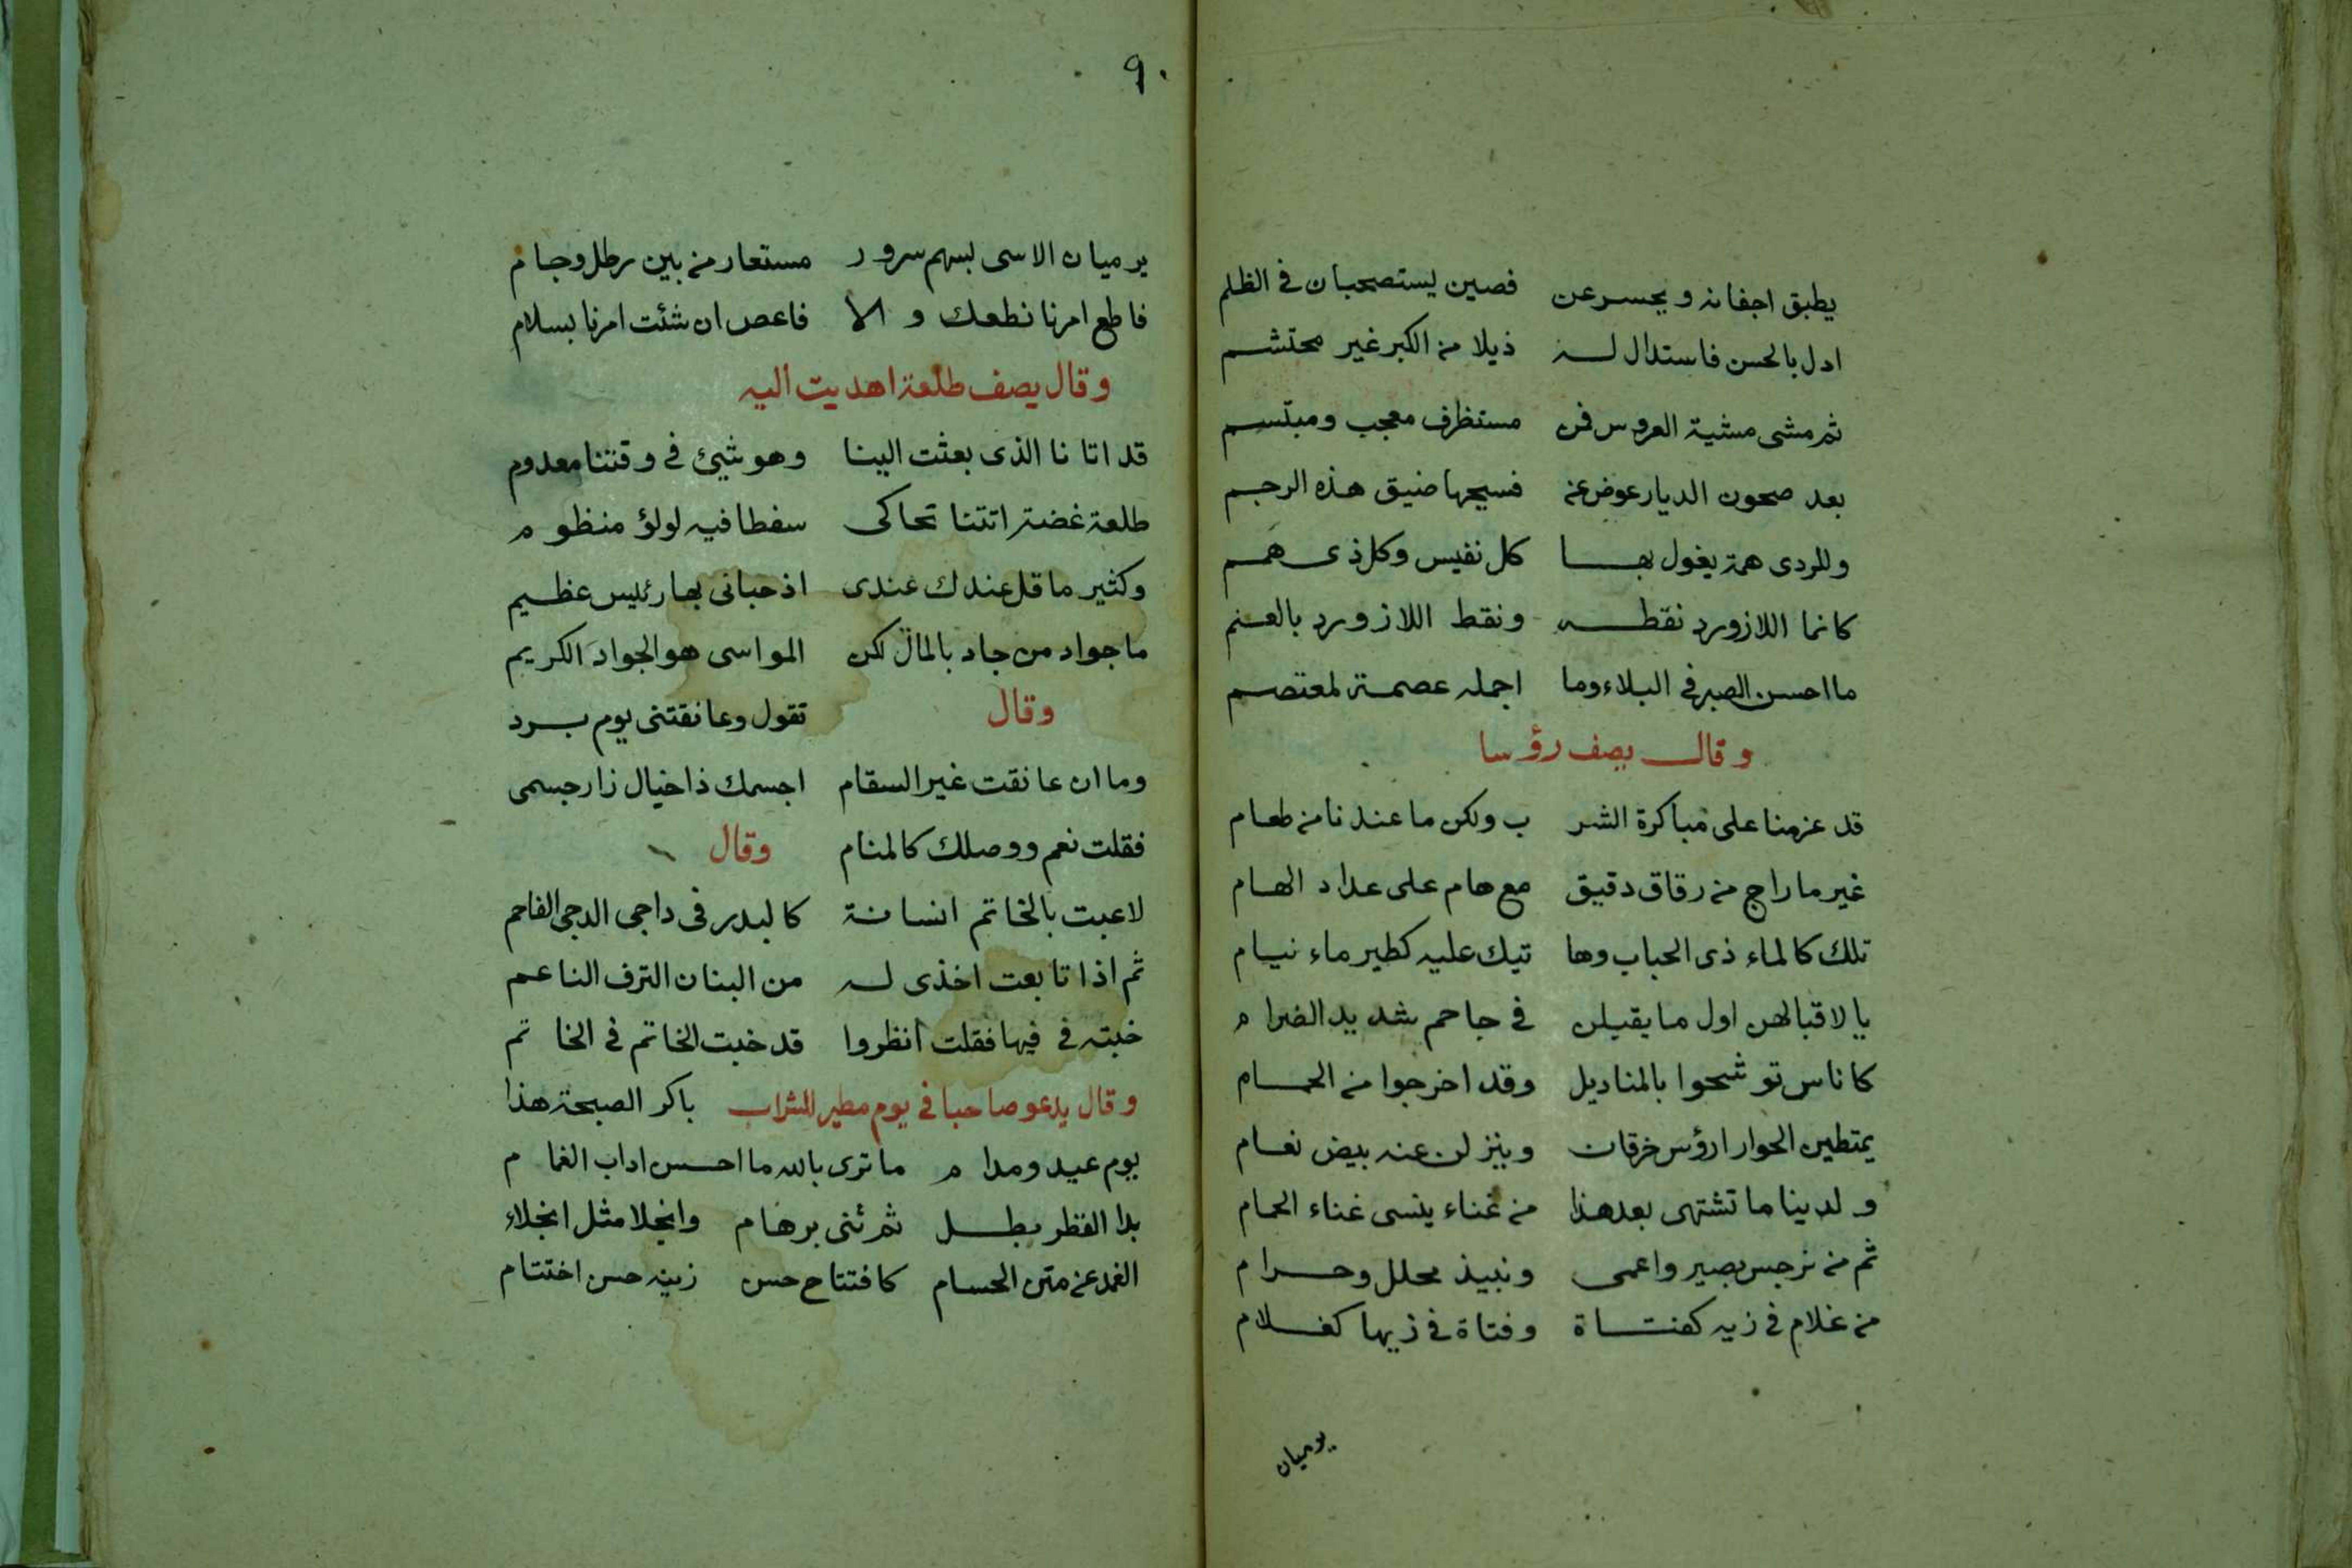 يطبق اجفانه ويحسر عن فصين يستصحبان في الظلم
ادل بالحسن فاستدال له ذيلا من الكبر غير محتشم
ثم مشى مشية العروس فمن مستظرف معجب ومبتسم
بعد صحون الديار عوض عن فسيحها ضيق هذه الرجم
وللردى همة يغول بها كل نفيس وكل ذى همم
كانما اللازورد نقطه ونقط اللازورد بالعنم
ما احسن الصبر في البلاء وما اجمله عصمة لمعتصم
وقال يصف رؤسا
قد عزمنا على مباكرة الشر ب ولكن ما عندنا من طعام
غير ما راج من رقاق دقيق مع هام على عداد الهام
تلك كالماء ذى الحباب وها تيك عليه كطير ماء نيام
يا لاقبالهن اول ما يقبلن في جاحم شديد الضرام
كاناس توشحوا بالمناديل وقد اخرجوا من الحمام
يمتطين الحوار ارؤس خرقات وينزلن عنه بيض نعام
ولدينا ما تشتهى بعد هذا من غناء ينسى غناء الحمام
ثم من نرجس بصير واعمى ونبيذ محلل وحرام
من غلام في زيه كفتاة وفتاة في زيها كغلام
يرميان
٩٠
يرميان الاسى بسهم سرور مستعار من بين رطل وجام
فاطع امرنا نطعك والا فاعص ان شئت امرنا بسلام
وقال يصف طلعة اهديت اليه
قد اتانا الذى بعثت الينا وهو شيئ في وقتنا معدوم
طلعة غضة اتتنا تحاكى سفطا فيه لولؤ منظوم
وكثير ما قل عندك عندى اذ حبانى بها رئيس عظيم
ما جواد من جاد بالمال لكن المواسى هو الجواد الكريم
وقال تقول وعانقتنى يوم برد
وما ان عانقت غير السقام اجسمك ذا خيال زار جسمى
فقلت نعم ووصلك كالمنام وقال
لاعبت بالخاتم انسانة كالبدر فى داجى الدجى الفاحم
ثم اذا تابعت اخذى له من البنان الترف الناعم
خبته في فيها فقلت انظروا قد خبت الخاتم في الخاتم
وقال يدعو صاحبا في يوم مطير للشراب باكر الصبحة هذا
يوم عيد ومدام ما ترى بالله ما احسن اداب الغمام
بدا القطر بطل ثم ثنى برهام وانجلا مثل انجلاء
الغمد عن متن الحسام كافتتاح حسن زينه حسن اختتام